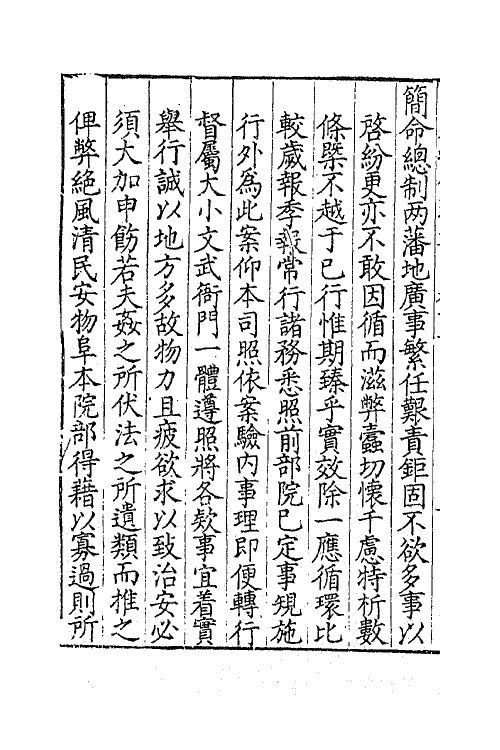 簡命總制两藩地廣事繁任艱責鉅固不欲多事以
啓紛更亦不敢因循而滋弊蠹切懷千慮特析數
條槩不越于已行惟期臻乎實效除一應循環比
較歲報季報常行諸務悉照前部院已定事規施
行外爲此案仰本司照依案驗内事理即便轉行
督屬大小文武衙門一體遵照將各欵事宜着實
舉行誠以地方多故物力且疲欲求以致治安必
須大加申飭若夫姦之所伏法之所遺類而推之
俾弊絶風清民安物阜本院部得藉以寡過則所